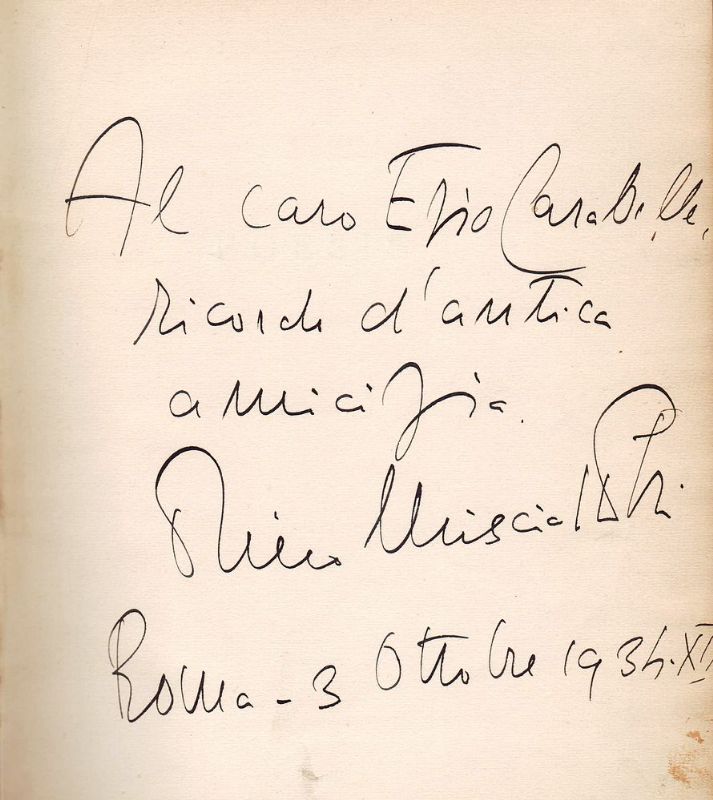 Al caro Ezio Carabella,
ricordo d'antica
amicizia.
Piero Misciattelli.
Roma - 3 Ottobre 1934. XII